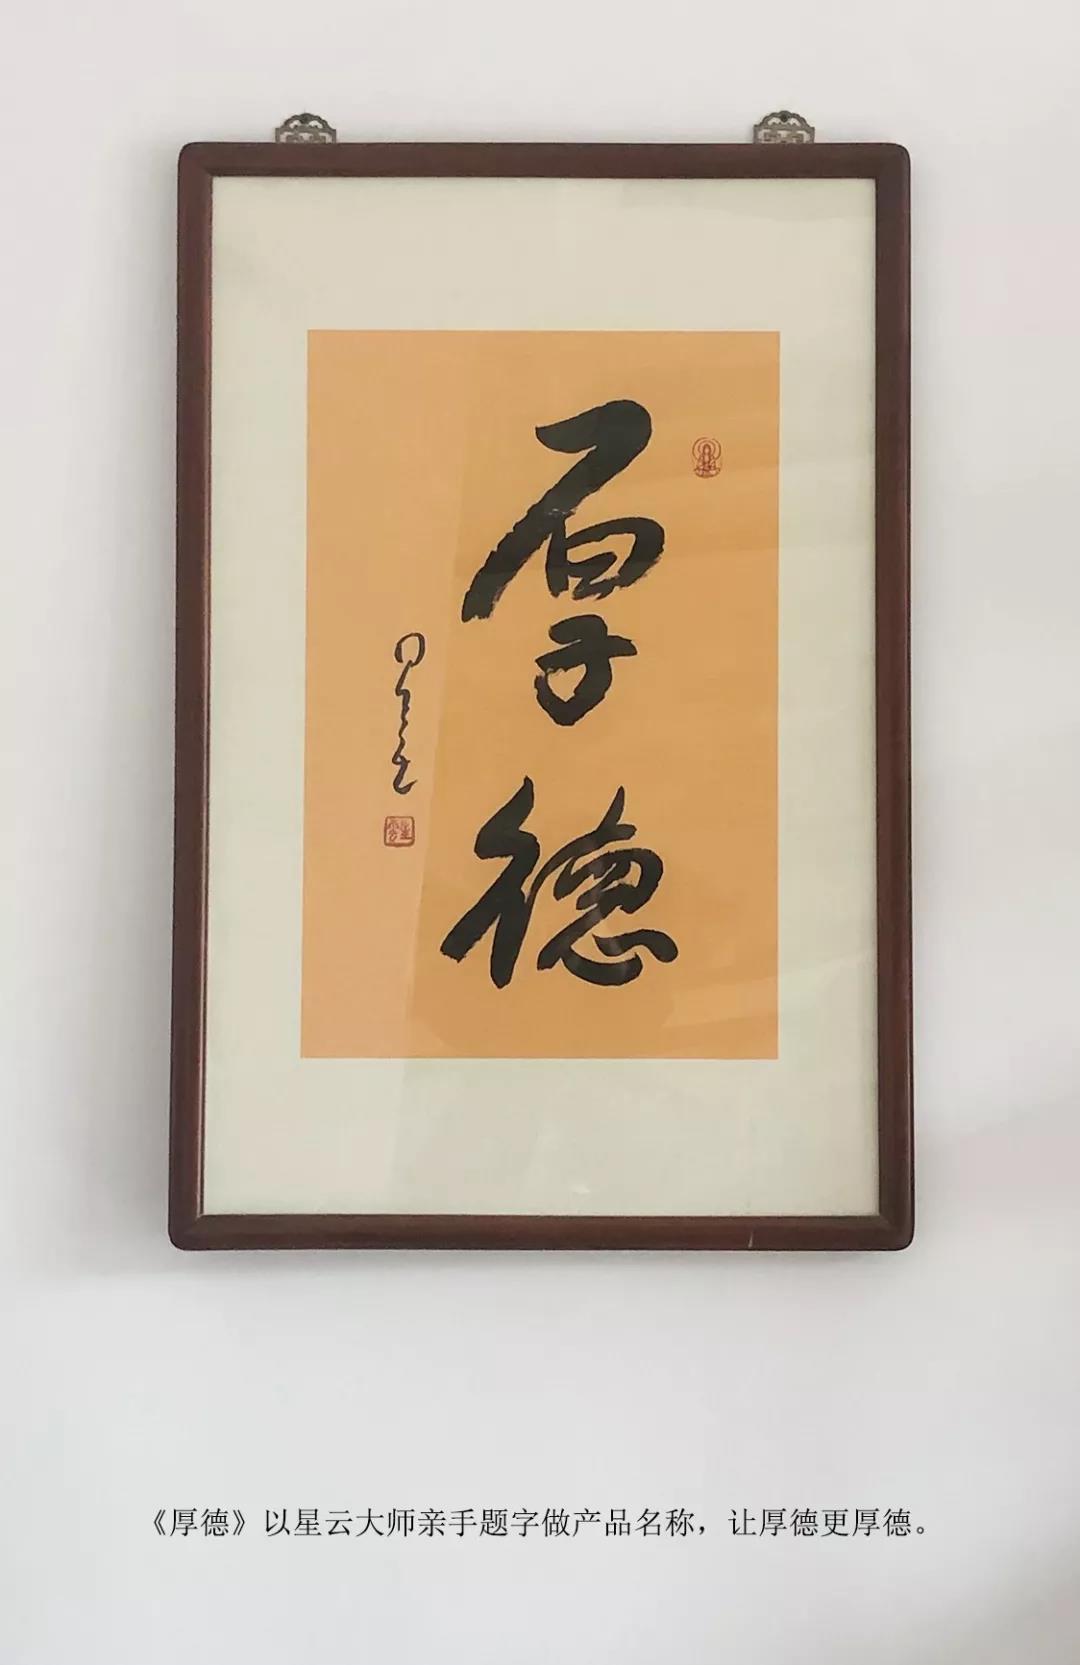 厚德
星云
星雲
《厚德》以星云大师亲手题字做产品名称，让厚德更厚德。